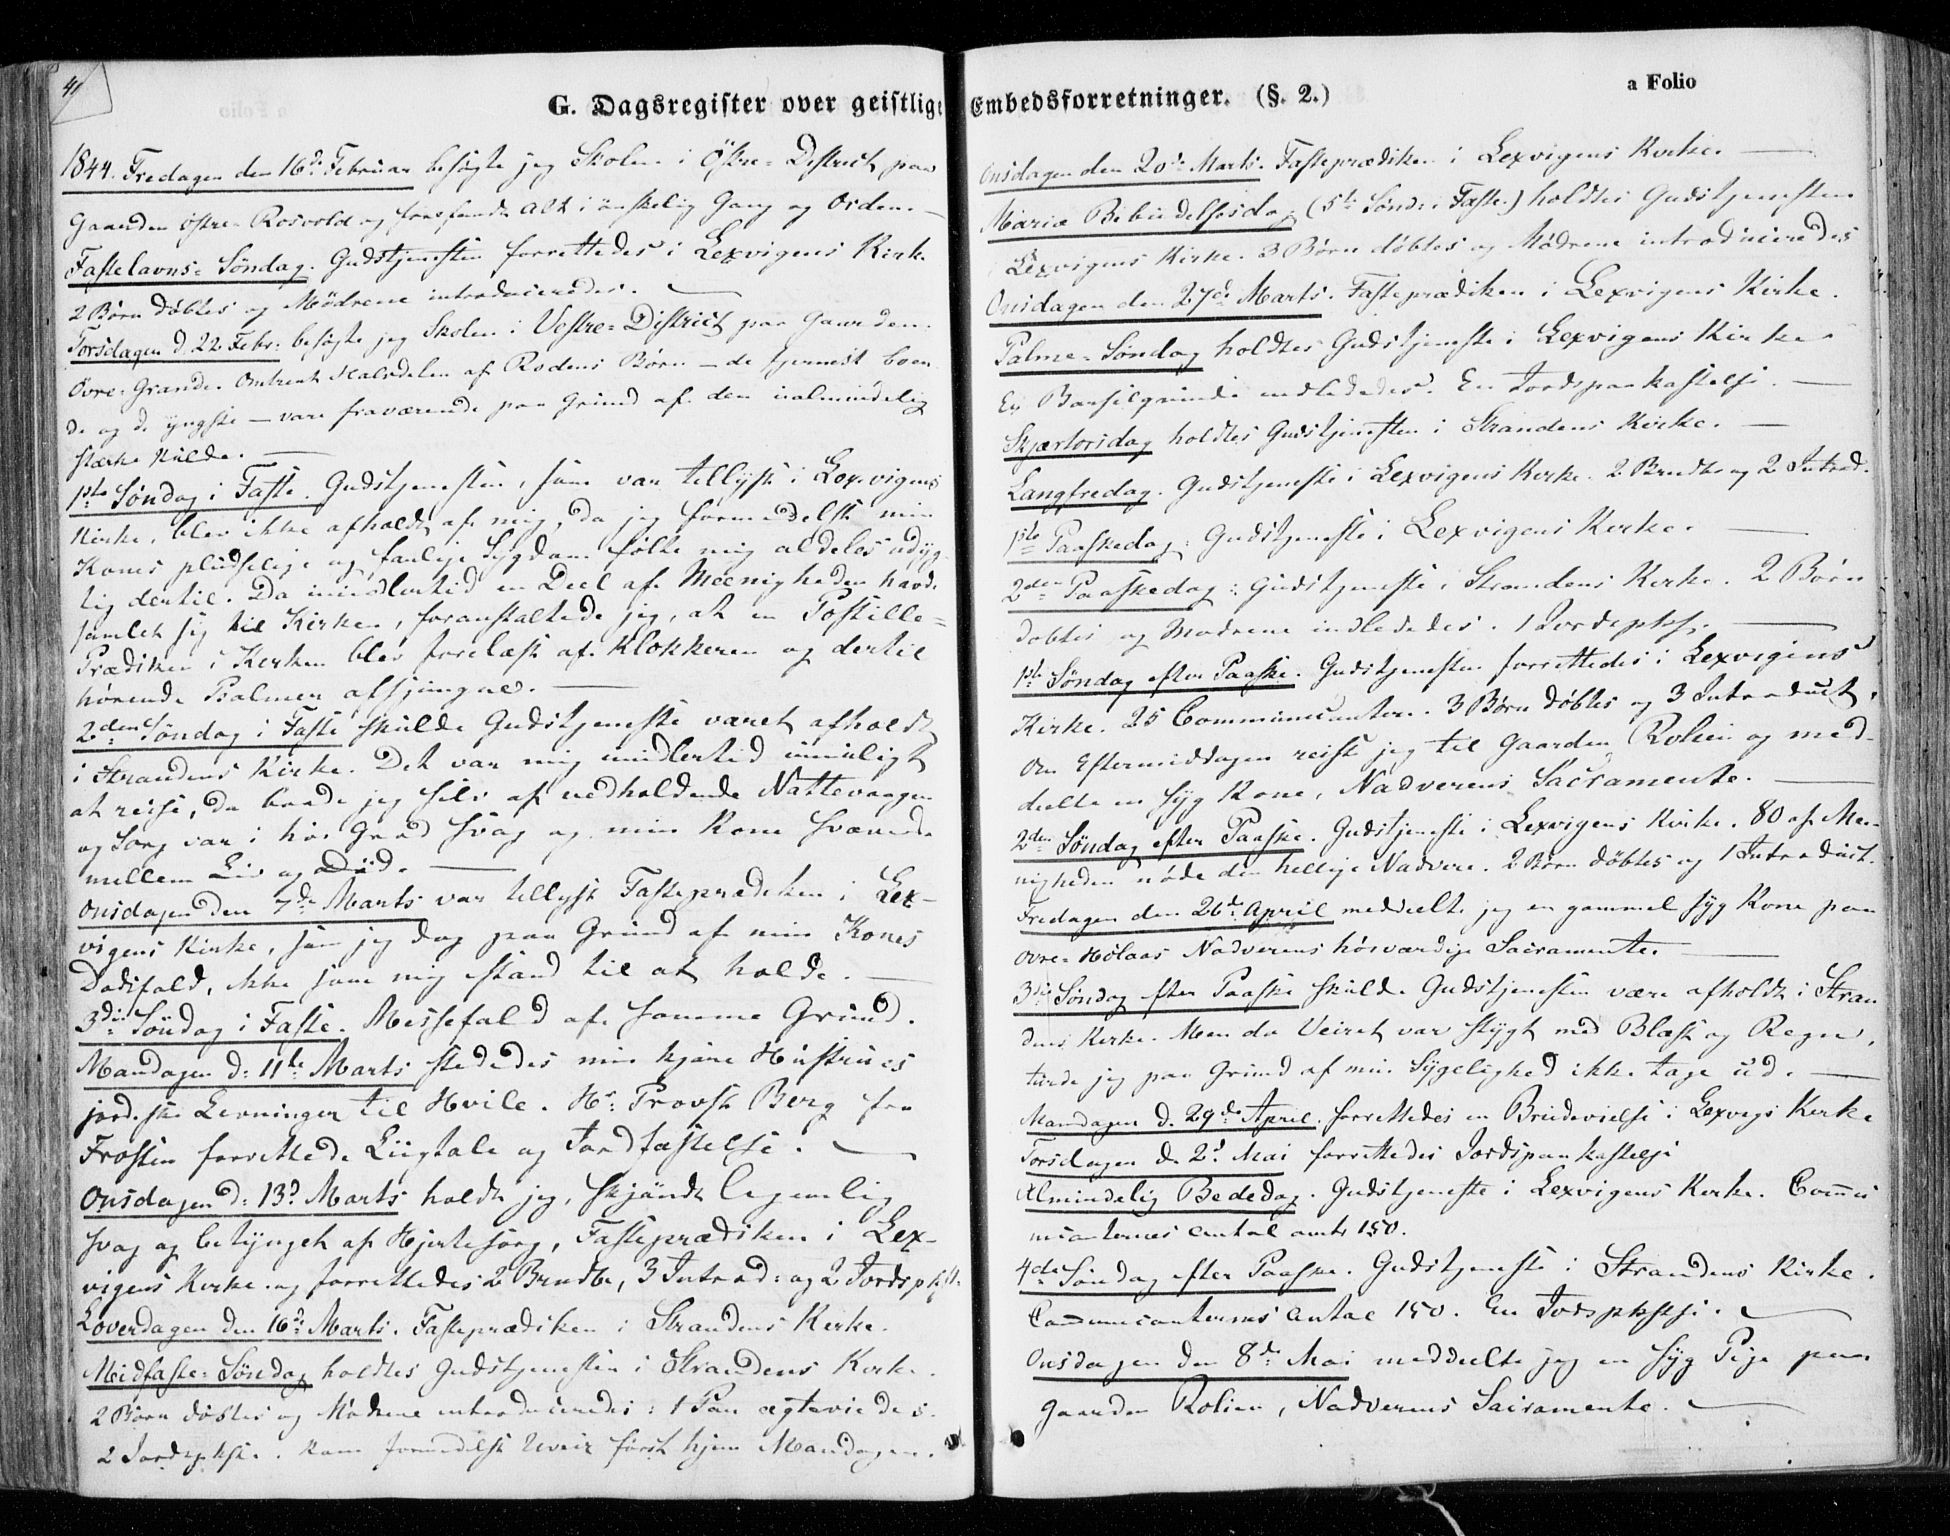 41
G. Dagsregister over geistlige Embedsforretninger. (§. 2.)
a Folio
1844. Fredagen den 16de Februar besøgte jeg Skolen i Østre-District paa
Gaarden Østre-Rosvold og forefandt Alt i ønskelig Gang og Orden. —
Fastelavns-Søndag. Gudstjenesten forrettedes i Lexvigens Kirke
2 Børn døbtes og Mødrene introduceredes. —
Torsdagen d. 22 Febr: besøgte jeg Skolen i Vestre-District paa Gaarden
Øvre-Grande. Omtrent Halvdelen af Rodens Børn — de fjernest boen
de og de yngste — vare fraværende paa Grund af den ualmindelig
stærke Kulde. —
1ste Søndag i Faste. Gudstjenesten, som var tillyst i Lexvigens
Kirke, blev ikke afholdt af mig, da jeg formedelst min
Kones pludselige og farlige Sygdom følte mig aldeles udyg-
tig dertil. Da imidlertid en Deel af Meenigheden havde
samlet sig til Kirken, foranstaltede jeg, at en Postille-
Prædiken i Kirken blev forelæst af Klokkeren og dertil
hørende Psalmer afsjungne. —
2den Søndag i Faste skulde Gudstjeneste været afholdt
i Strandens Kirke. Det var mig imidlertid umuligt
at reise, da baade jeg selv af vedholdende Nattevaagen
og Sorg var i høi Grad svag og min Kone svævede
mellem Liv og Død. —
Onsdagen den 7de Marts var tillyst Fasteprædiken i Lex-
vigens Kirke, som jeg dog paa Grund af min Kones
Dødsfald, ikke saae mig istand til at holde. —
3die Søndag i Faste. Messefald af samme Grund.
Mandagen d: 11te Marts stededes min kjære Hustrues
jordiske Levninger til Hvile. Hr: Provst Berg fra
Frosten forrettede Liigtale og Jordfæstelse. —
Onsdagen d: 13de Marts holdt jeg, skjøndt legemlig
svag og betynget af Hjertesorg, Fasteprædiken i Lex-
vigens Kirke og forrettedes 2 Brudev, 3 Introd: og 2 Jordspkst.
Løverdagen den 16de Marts. Fasteprædiken i Strandens Kirke.
Midfaste-Søndag holdtes Gudstjenesten i Strandens Kirke.
2 Børn døbtes og Mødrene introduceredes: 1 Par ægteviedes.
2 Jordspkst. Kom formedelst Uveir først hjem Mandagen.
Onsdagen den 20de Marts. Fasteprædiken i Lexvigens Kirke. —
Mariæ Bebudelsesdag (5te Sønd: i Faste) holdtes Gudstjenesten
i Lexvigens Kirke. 3 Børn døbtes og Mødrene introduceredes
Onsdagen den 27de Marts. Fasteprædiken i Lexvigens Kirke.
Palme-Søndag holdtes Gudstjeneste i Lexvigens Kirke
En Barselqvinde indlededes. En Jordspaakastelse. —
Skjærtorsdag holdtes Gudstjenesten i Strandens Kirke. —
Langfredag. Gudstjeneste i Lexvigens Kirke. 2 og 2 Introd.
1ste Paaskedag: Gudstjeneste i Lexvigens Kirke. —
2den Paaskedag: Gudstjeneste i Strandens Kirke. 2 Børn
døbtes og Mødrene indlededes. 1 Jordspks. —
1ste Søndag efter Paaske. Gudstjenesten forrettedes i Lexvigens
Kirke. 25 Communicanter. 3 Børn døbtes og 3 Introduct.
Om Eftermiddagen reiste jeg til Gaarden Rolien og med-
deelte en syg Kone, Nadverens Sacramente. —
2den Søndag efter Paaske. Gudstjeneste i Lexvigens Kirke. 80 af Mee-
nigheden nøde den hellige Nadvere. 2 Børn døbtes og 1 Introduct.
Fredagen den 26de April meddeelte jeg en gammel syg Kone paa
Øvre-Hølaas Nadverens høiværdige Sacramente. —
3die Søndag efter Paaske skulde Gudstjenesten være afholdt i Stran
dens Kirke. Men da Veiret var stygt med Blæst og Regn,
turde jeg paa Grund af min Sygelighed ikke tage ud. —
Mandagen d. 29de April. forrettedes en Brudevielse i Lexvigs Kirke
Torsdagen d. 2d Mai forrettedes Jordspaakastelse
Almindelig Bededag. Gudstjeneste i Lexvigens Kirke. Commu
nicanternes Antal omtr 150.
4de Søndag efter Paaske. Gudstjeneste i Strandens Kirke.
Communicanternes Antal 150. En Jordspkstse. —
Onsdagen den 8de Mai meddeelte jeg en syg Pige paa
Gaarden Rolien, Nadverens Sacramente. —